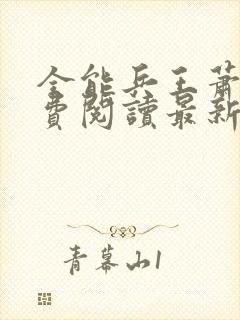 全能兵王蕭
費閱讀最新
青幕山1